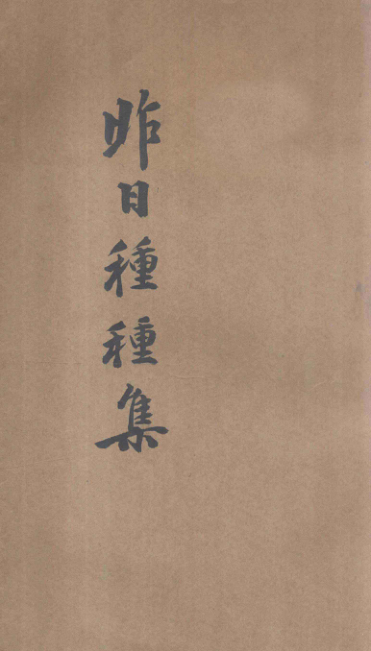 昨日種種集